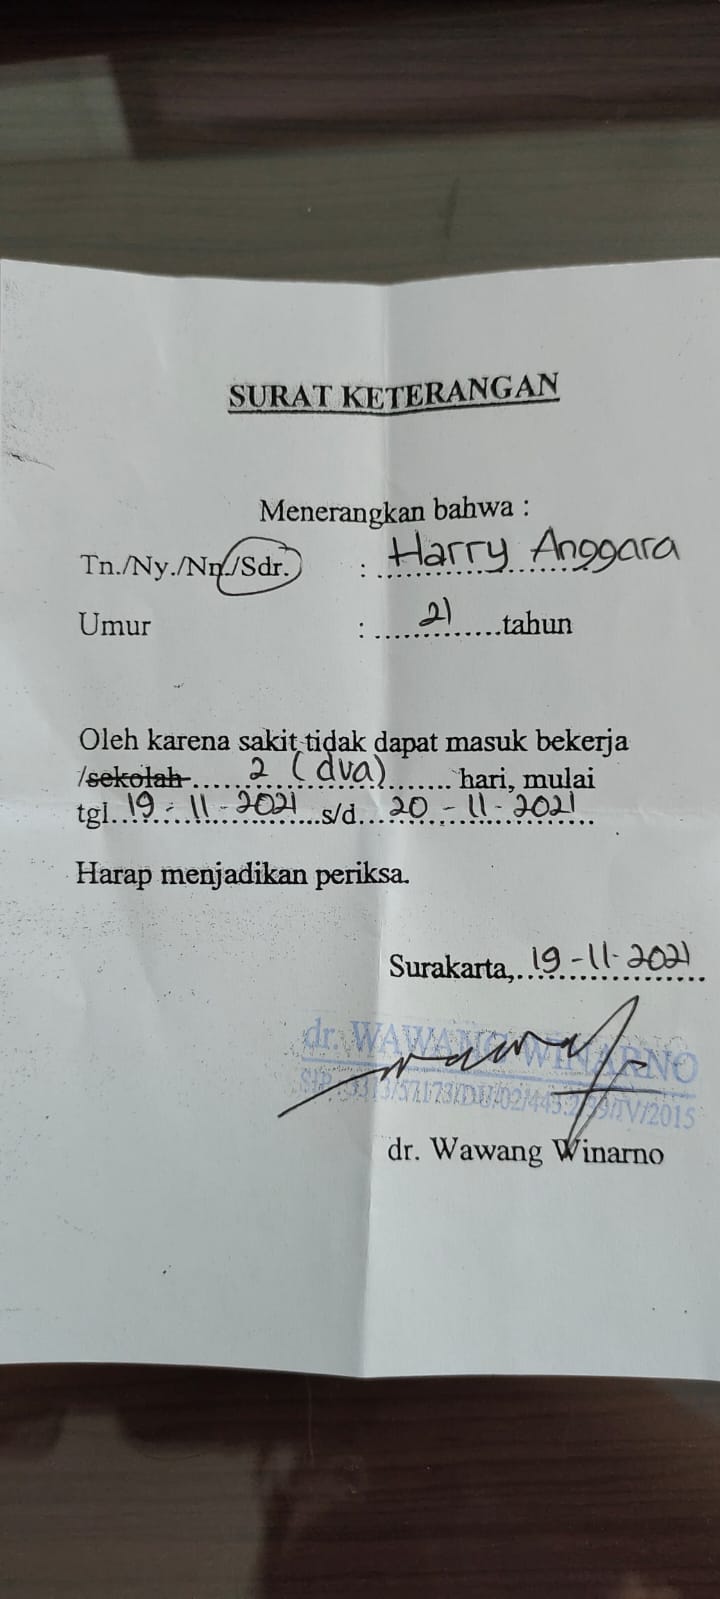 SURAT KETERANGAN
Menerangkan bahwa :
Tn./Ny./Nn./Sdr. : Harry Anggara
Umur : 21 tahun
Oleh karena sakit tidak dapat masuk bekerja
/sekolah 2 (dua) hari, mulai
tgl. 19-11-2021 s/d 20-11-2021
Harap menjadikan periksa.
Surakarta, 19-11-2021
dr. WAWANG WINARNO
dr. Wawang Winarno